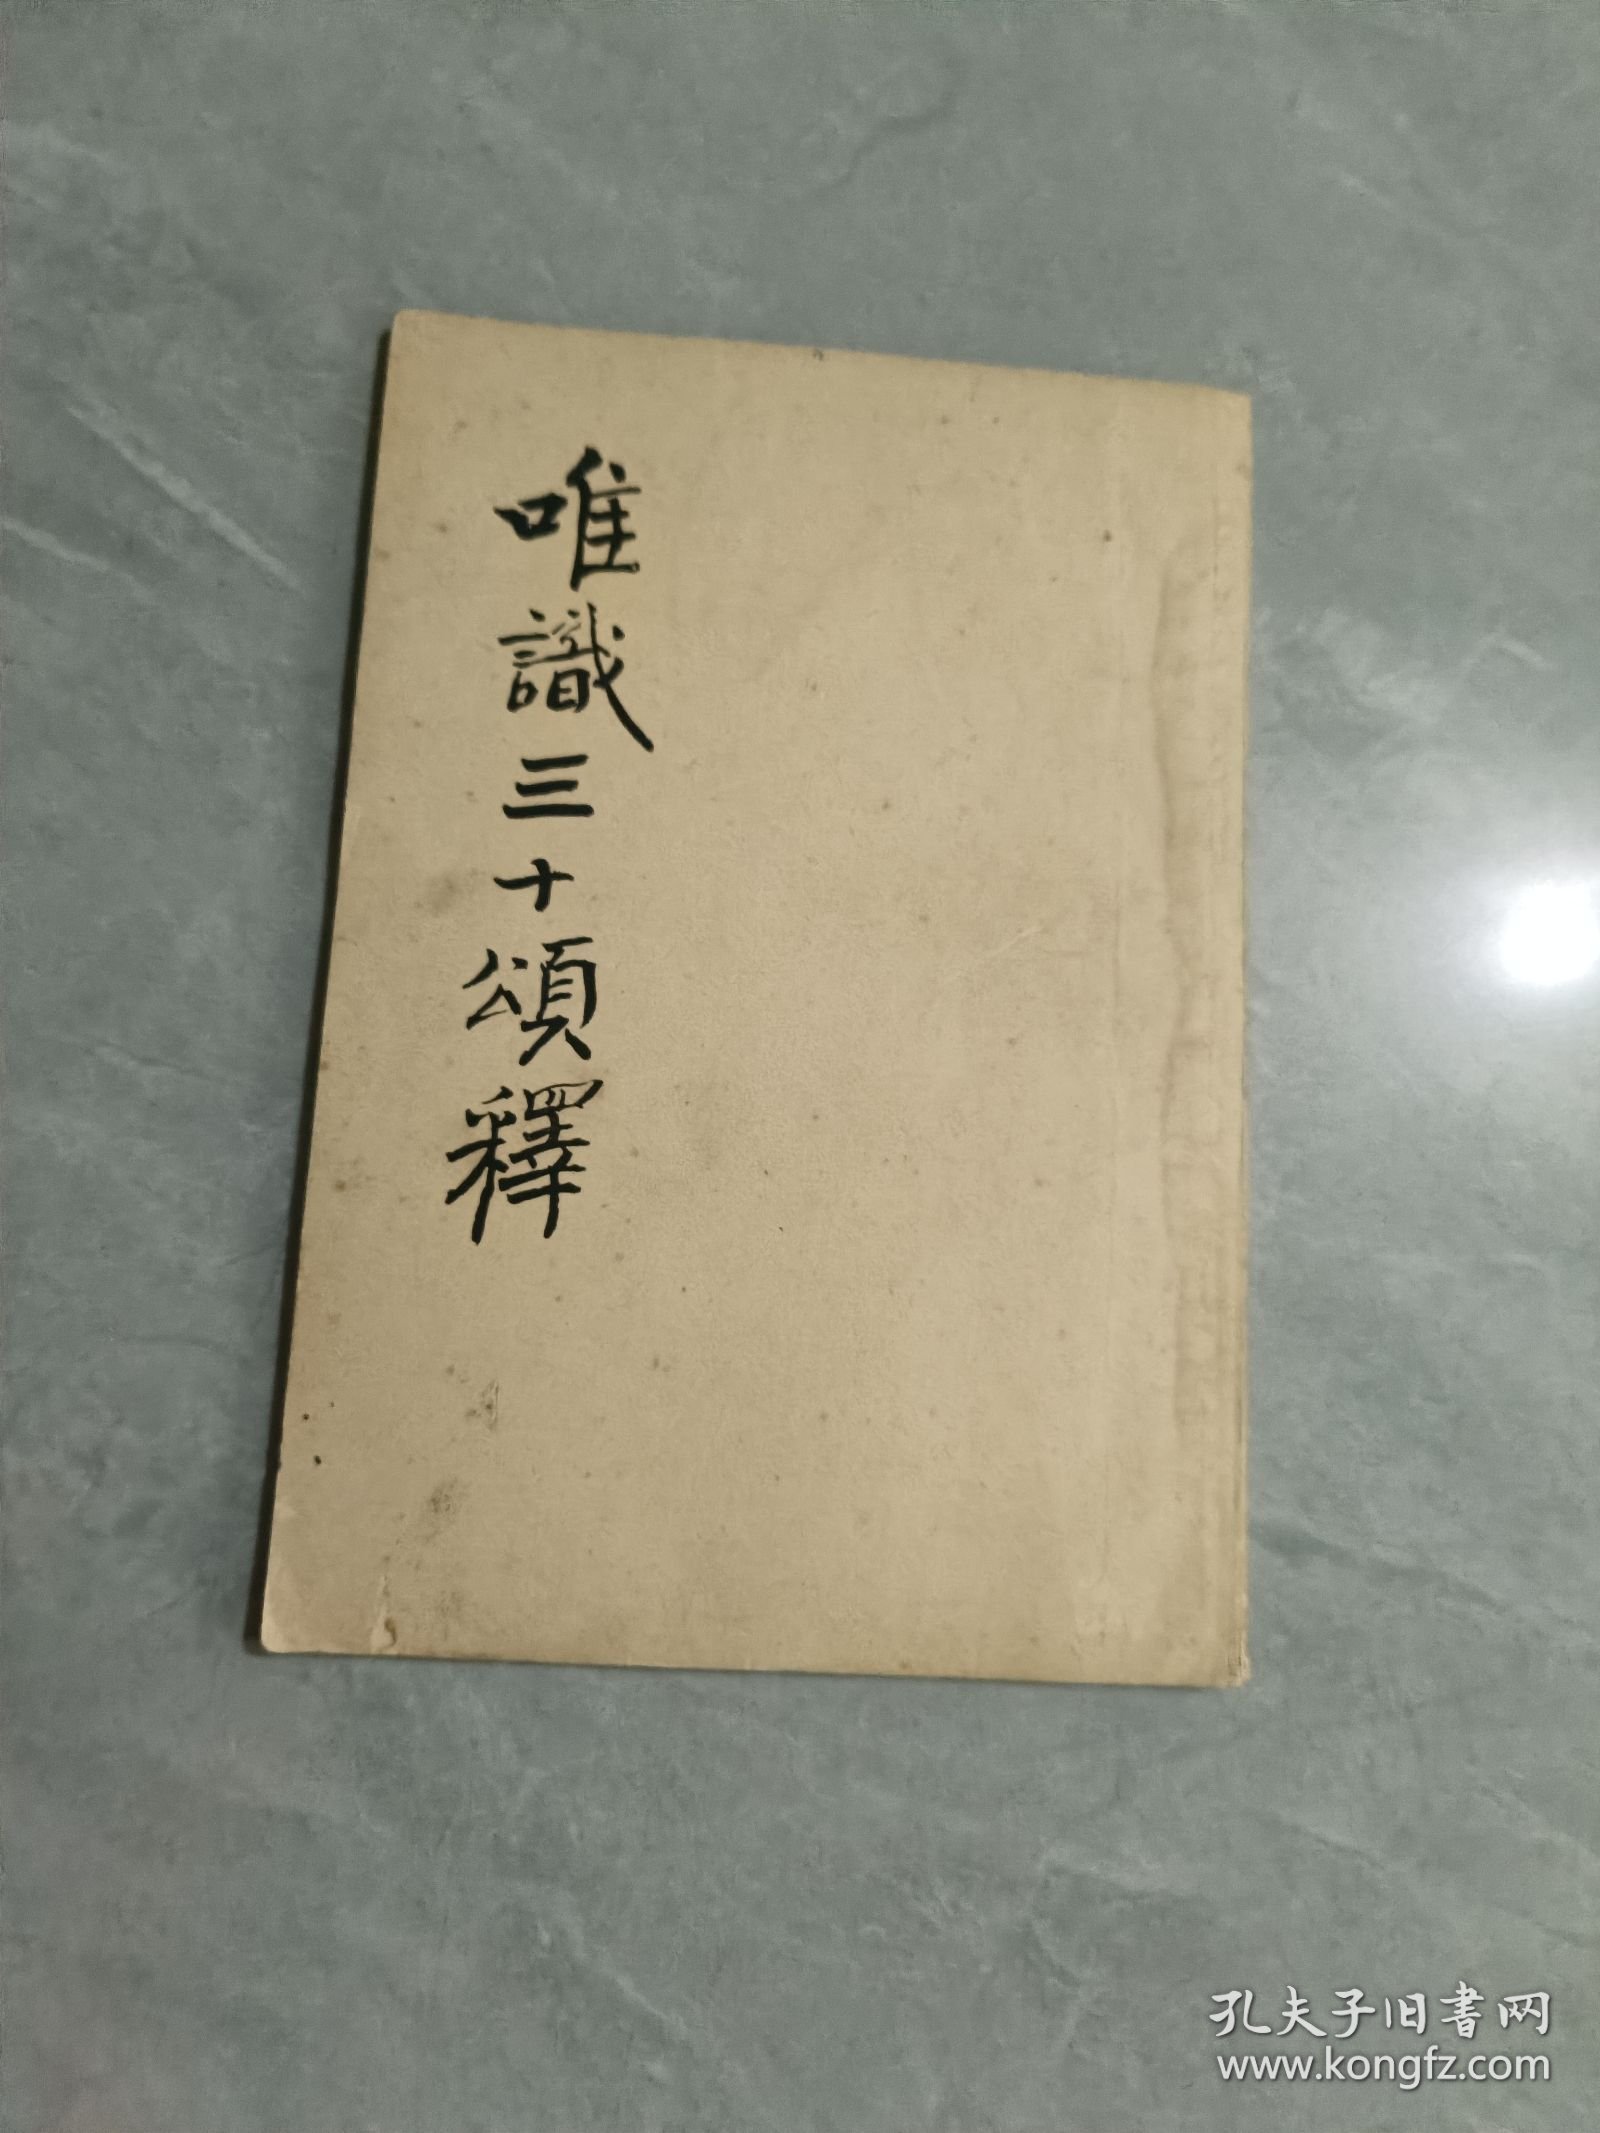 唯識三十頌釋
孔夫子旧书网
www.kongfz.com